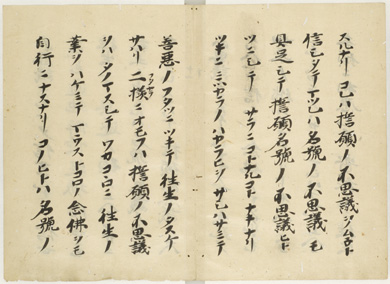 スルナリ コレハ誓願ノ不思議ヲムネト
信シタテマツレハ名號ノ不思議モ
具足シテ誓願名號ノ不思議ヒト
ツニシテ サラニコトナルコトナキナリ
ツキニミツカラノハカラヒヲサシハサミテ
善惡ノフタツニツキテ往生ノタスケ
サハリ二様ニオモフハ誓願ノ不思議
ヲハタノマスシテワカコヽロニ往生ノ
業ヲハケミテマウストコロノ念佛ヲモ
自行ニナスナリ コノヒトハ名號ノ